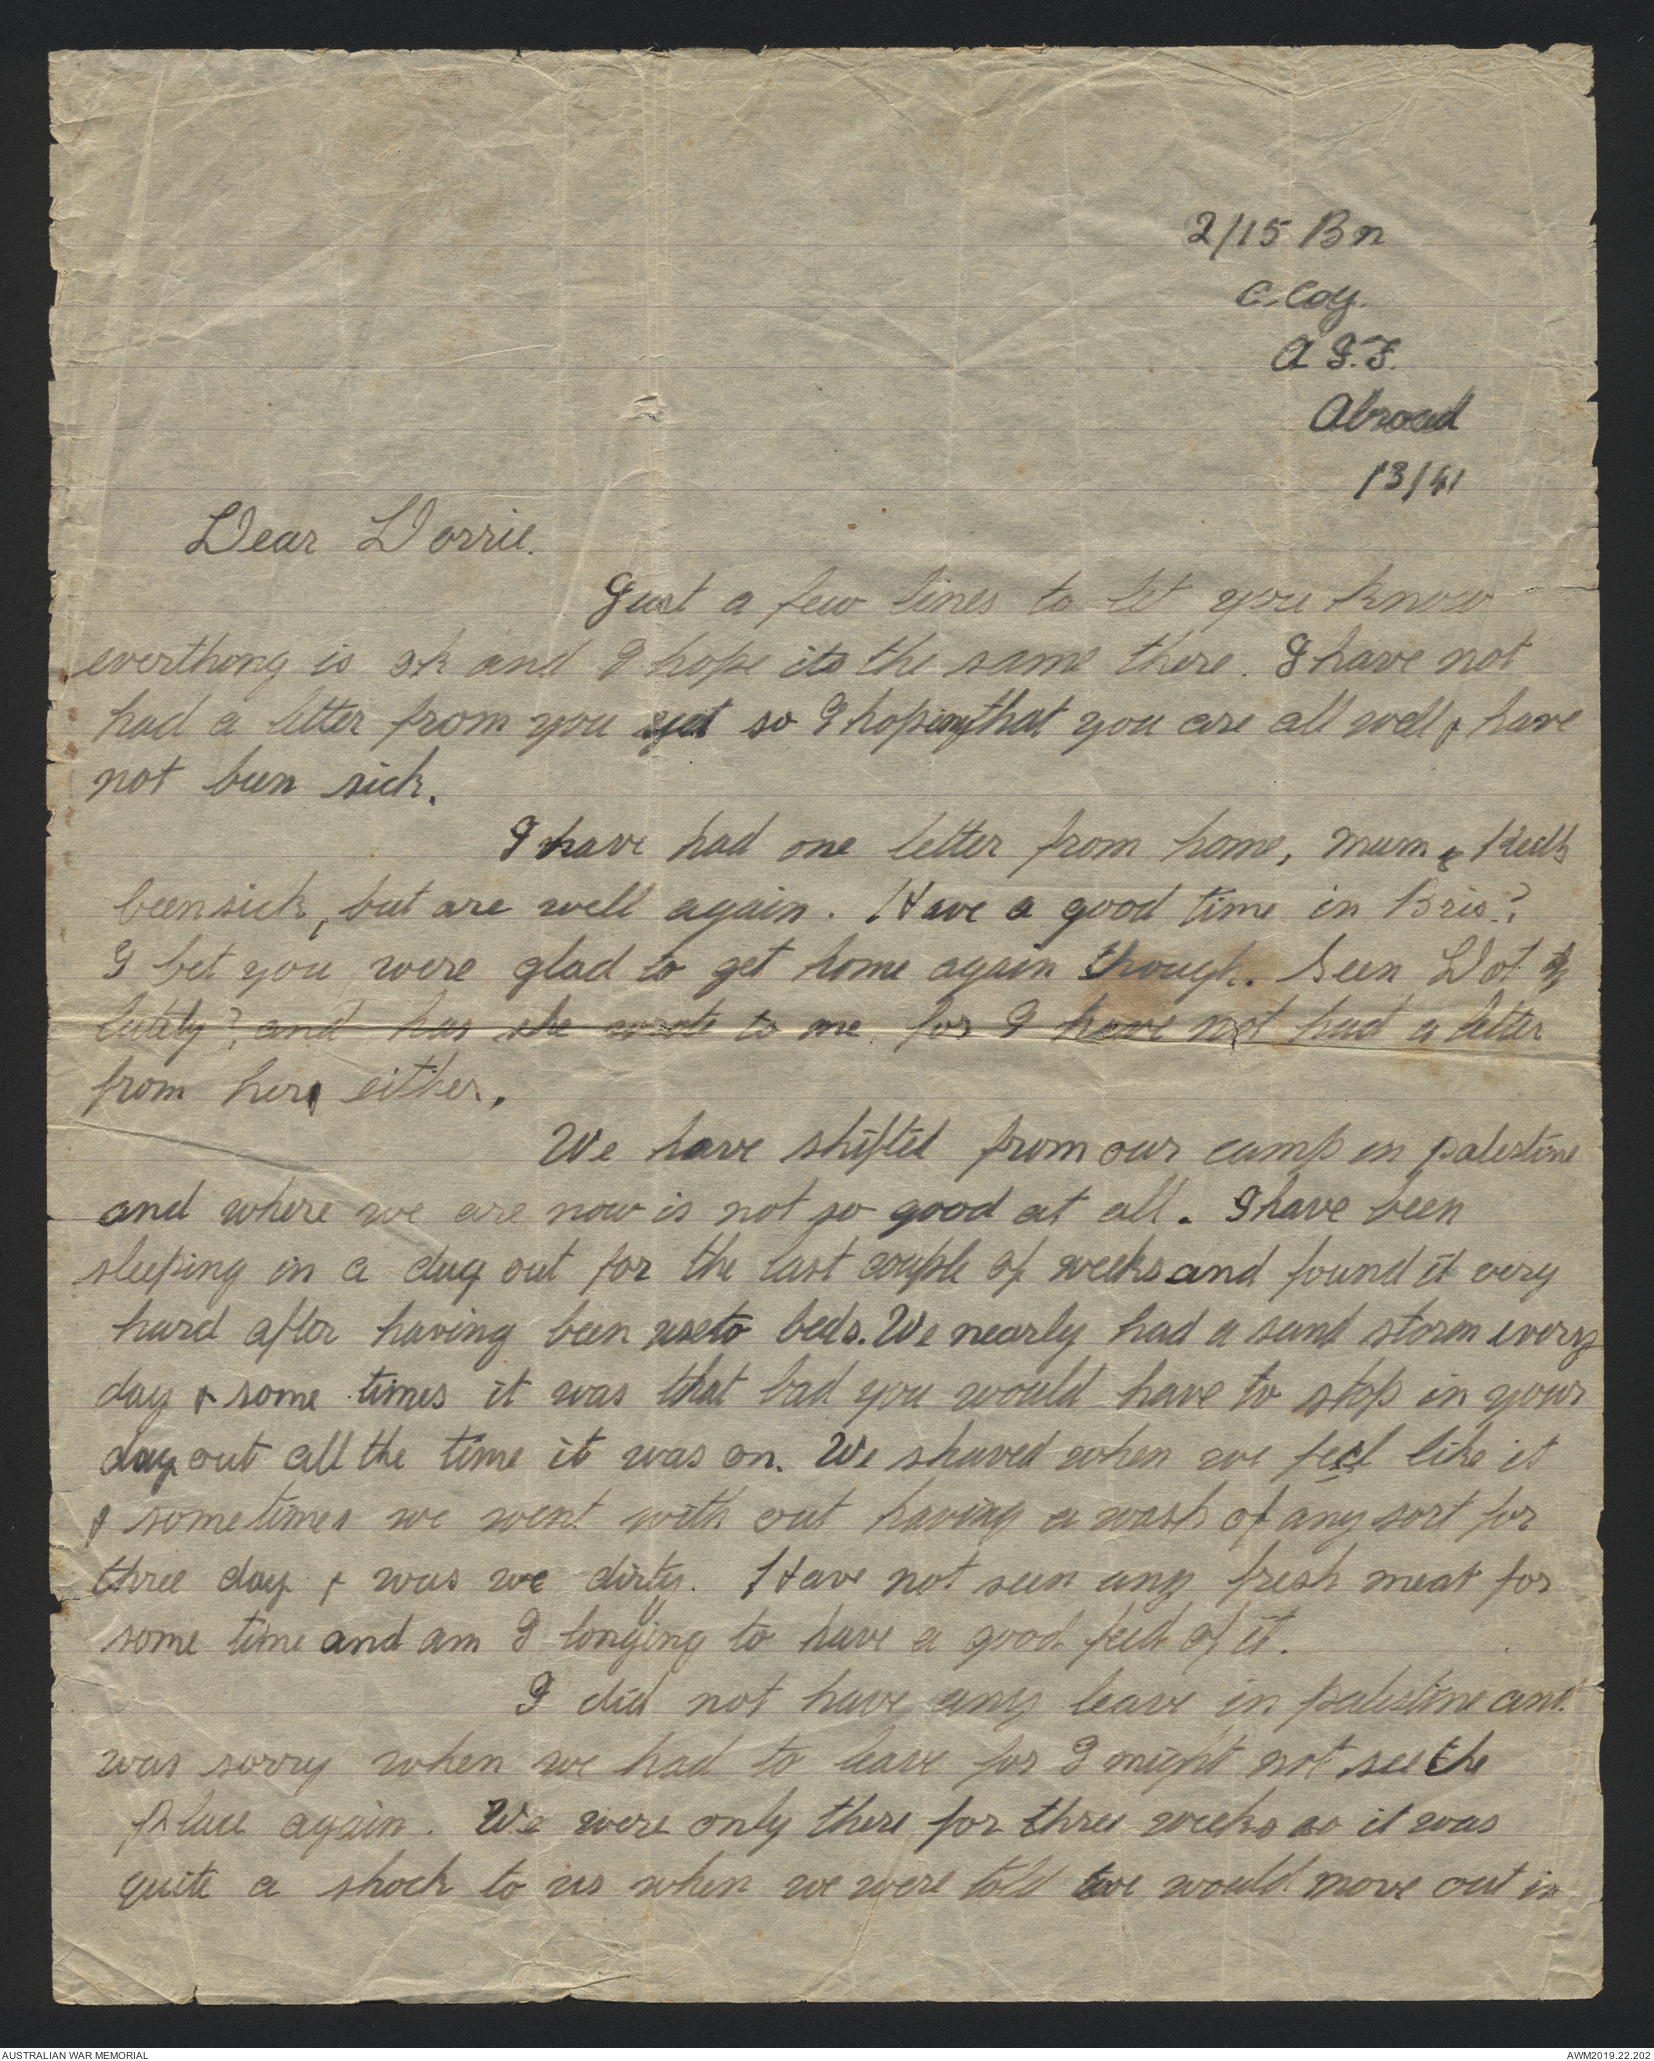 2/15 Bn
C. Coy.
A.I.F.
Abroad
/3/41
Dear Dorrie.
Just a few lines to let you know
everthong is ok and I hope its the same there. I have not
had a letter from you yet so I hoping that you are all well & have
not been sick.
I have had one letter from home, Mum & Keith
been sick, but are well again. Have a good time in Bris?
I bet you were glad to get home again though. Seen Dot
lately? and has she wrote to me for I have not had a letter
from her either.
We have shifted from our camp in palestine
and where we are now is not so good at all. I have been
sleeping in a dug out for the last couple of weeks and found it very
hard after having been use to beds. We nearly had a sand storm every
day & some times it was that bad you would have to stop in your
dug out all the time it was on. We shaved when we feel like it
& sometimes we went with out having a wash of any sort for
three day & was we dirty. Have not seen any fresh meat for
some time and am I longing to have a good feed of it.
I did not have any leave in palestine and
was sorry when we had to leave for I might not see the
place again. We were only there for three weeks so it was
quite a shock to us when we were told we would move out in
AUSTRALIAN WAR MEMORIAL
AWM2019.22.202